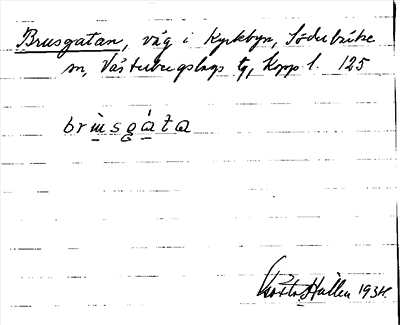 Brusgatan, väg i Kyrkbyn, Söderbärke
sn, Västerbergslags tg, Kopp l. 125
brùsgáta
Hallen 1934.